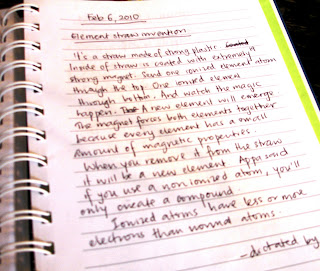 Feb 6, 2010
Element straw invention
It's a straw made of strong plastic.
Inside of straw is coated with extremely a
strong magnet. Send one ionized element atom
through the top. One ionized element
through bottom. And watch the magic
happen. A new element will emerge.
The magnet forces both elements together
because every element has a small
amount of magnetic properties.
When you remove it from the straw
it will be a new element. Appa said
if you use a non ionized atom, you'll
only create a compound.
Ionized atoms have less or more
electrons than normal atoms.
- dictated by